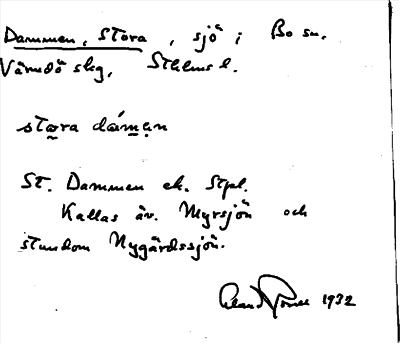 Dammen, Stora, sjö i Bo sn.
Värmdö skg, Sthlms l.
stora dám̲ən
St. Dammen ek. Stpl.
Kallas äv. Myrsjön och
stundom Nygårdssjön.
1932